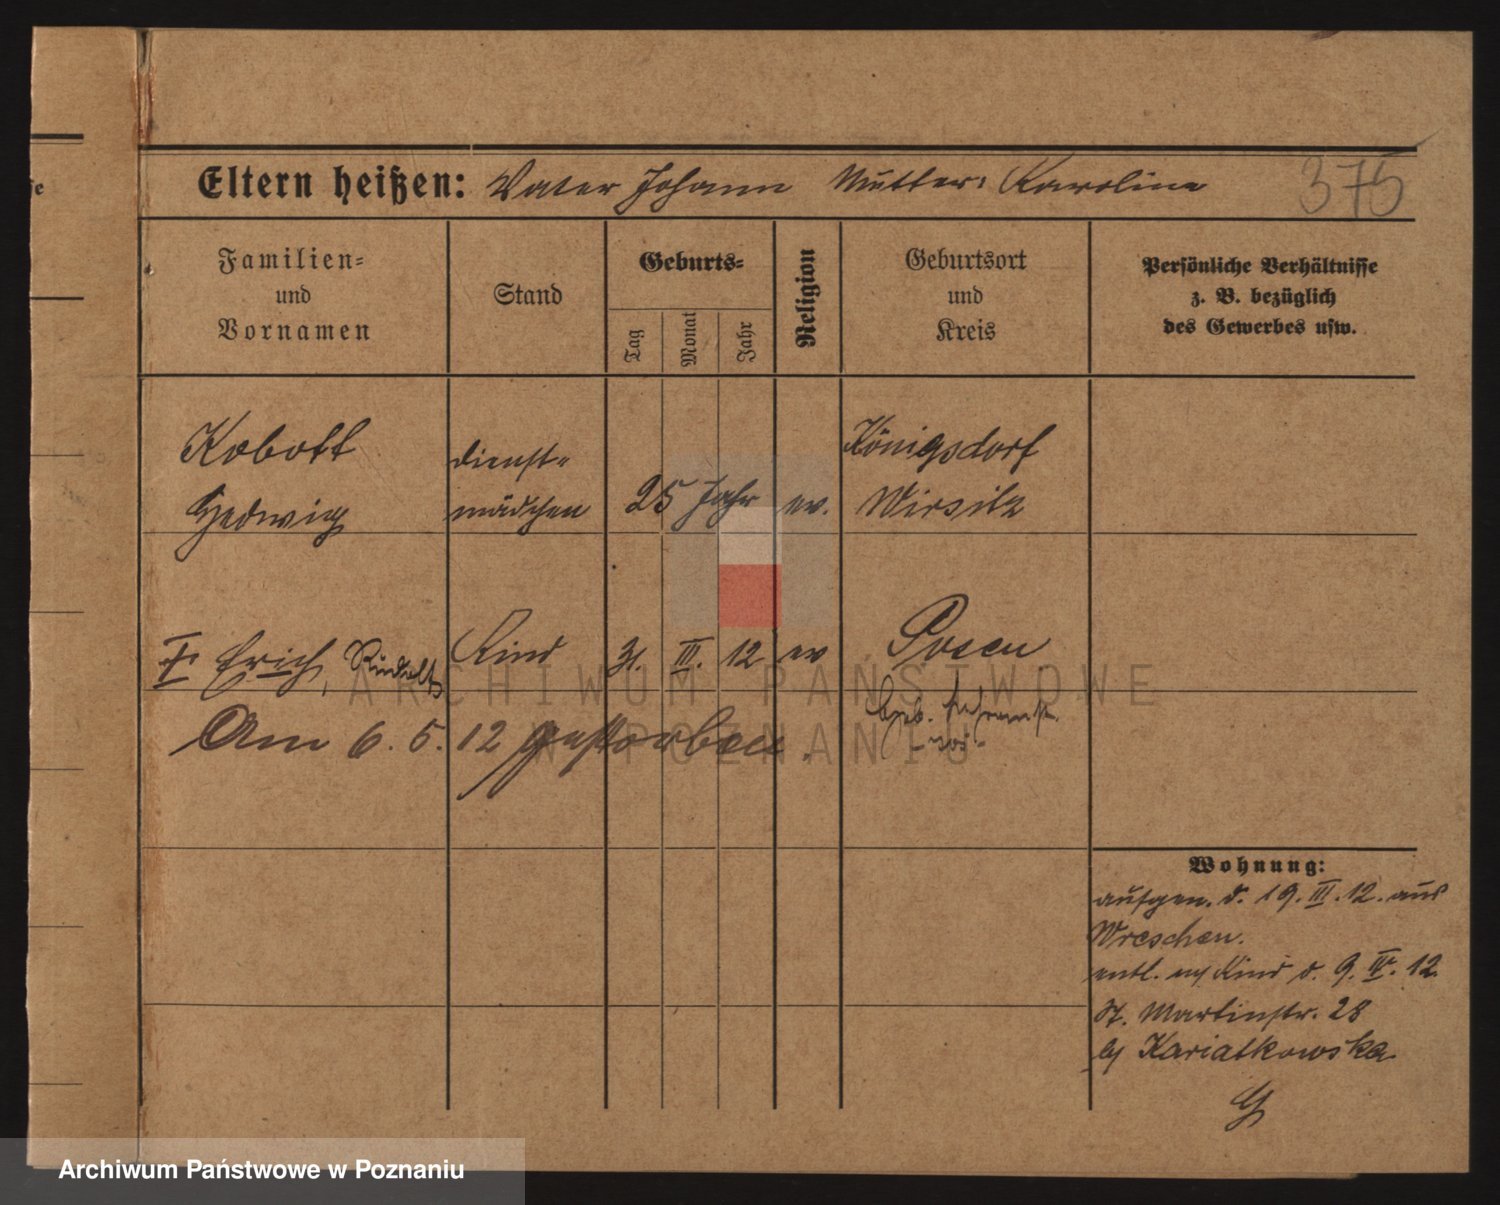 se
Eltern heißen: Vater Johann Mutter: Karoline
375
Familien=
und
Vornamen
Stand
Geburts=
Tag
Monat
Jahr
Religion
Geburtsort
und
Kreis
Persönliche Verhältnisse
z. B. bezüglich
des Gewerbes usw.
Kobott
Hedwig
Dienst=
mädchen
25 Jahr
ev.
Königsdorf
Wirsitz
Erich,
Kind
31. III. 12
ev
Posen
Am 6. 5. 12 gestorben.
Geb.
Wohnung:
aufgen. d. 19. III. 12. aus
Wreschen.
entl. m/ Kind d. 9. IV. 12.
St. Martinstr. 28
b/
ARCHIWUM PAŃSTWOWE
W POZNANIU
Archiwum Państwowe w Poznaniu